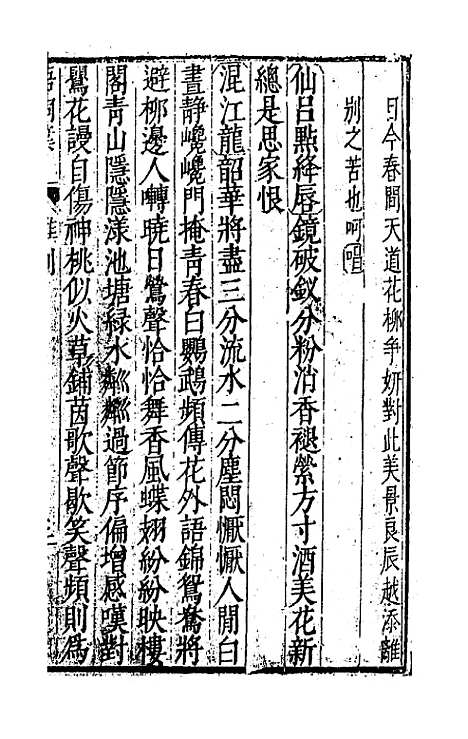 日今春間天道花柳爭妍對此美景良辰越添離
別之苦也呵唱
仙呂點絳唇鏡破釵分粉消香褪縈方寸酒美花新
總是思家恨
混江龍韶華將盡三分流水二分塵悶懨懨人閒白
晝静巉巉門掩青春白鸚鵡頻傳花外語錦鴛鴦將
避柳邊人囀曉日鶯聲恰恰舞香風蝶翅紛紛映樓
閣青山隱隱漾池塘緑水粼粼過節序偏增感嘆對
鶯花謾自傷神桃似火草鋪茵歌聲歇笑聲頻則為